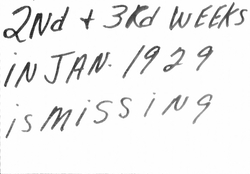 2Nd + 3Rd WEEKS
iN JAN. 1929
is MISSING